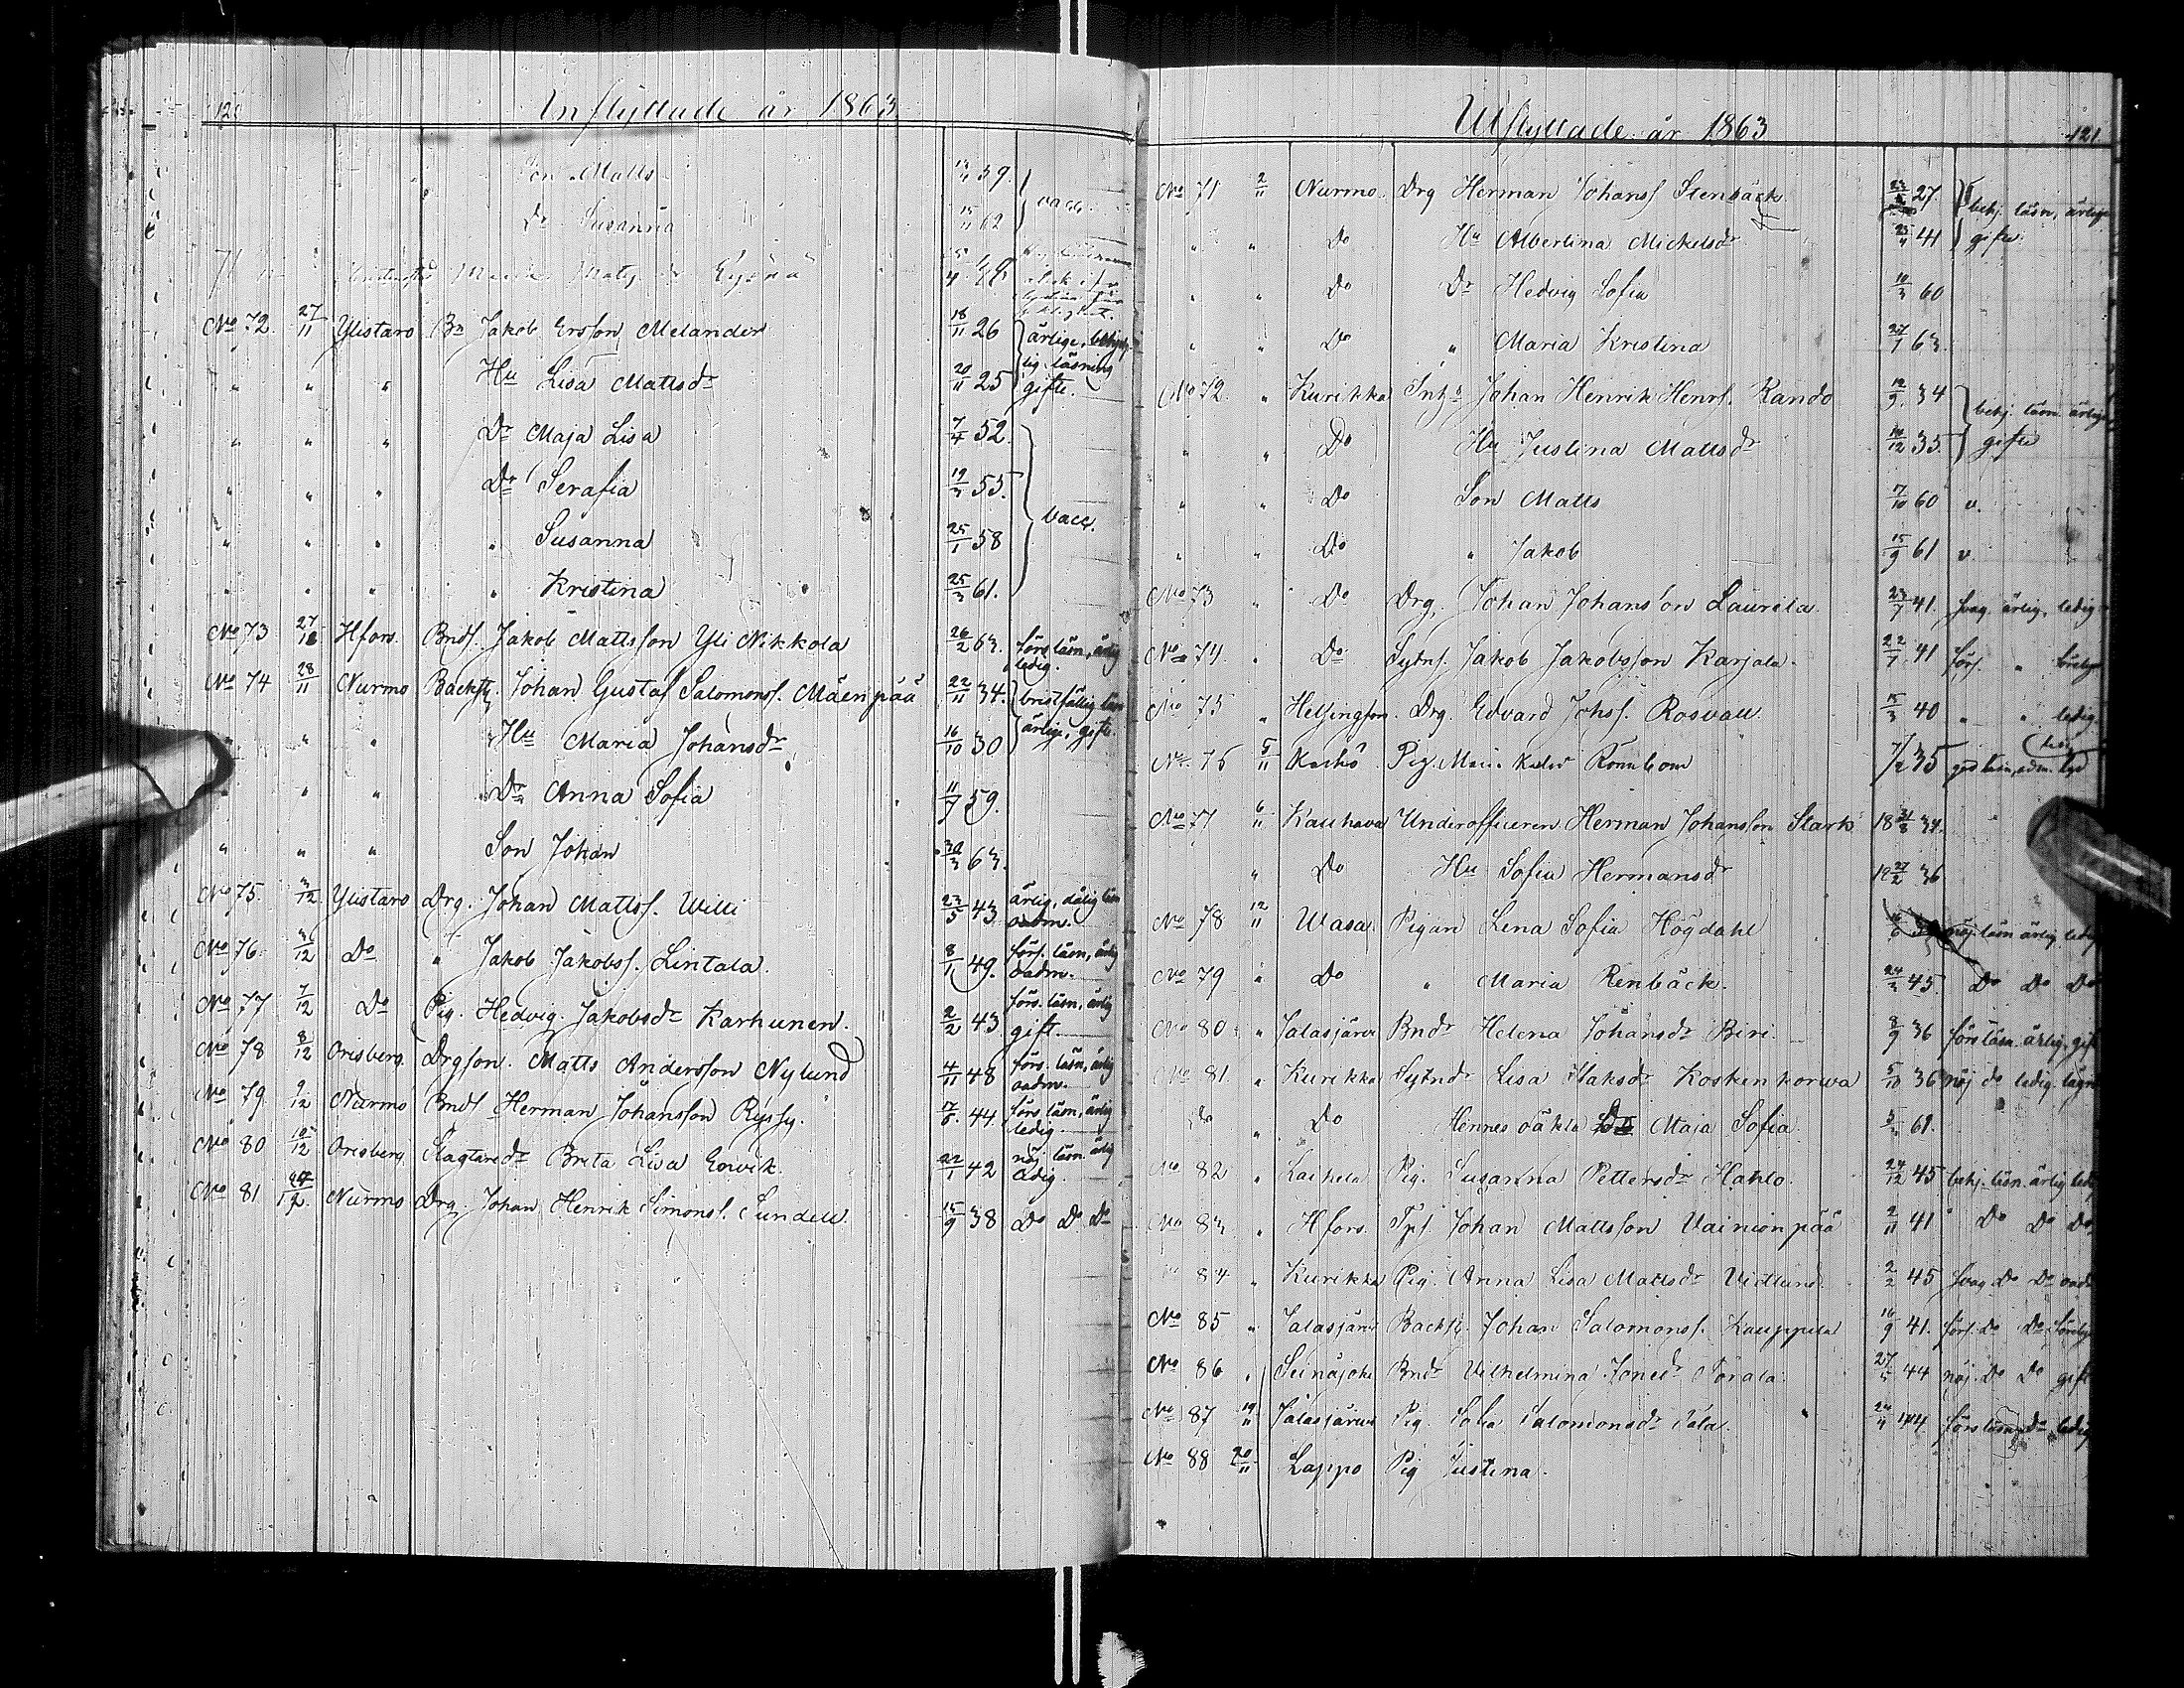 120
Inflyttade år 1863
Son Matts 59. vacc.
Do Susanna 15/11 62
71
No 72. 27/11 Ylistaro Bn Jakob Ersson Melander 18/11 26 ärlige, behj.
" " " Hu Lisa Mattsdr 20/11 25 lig läsning gifte.
" " " Dr Maja Lisa 7/4 52.
" " " Do Serafia 19/3 55.
" " " " Susanna 25/1 58 vacc.
" " " " Kristina 25/3 61.
No 73 27/11 Hfors. Bnds. Jakob Mattsson Yli Nikkola 26/2 63. förs. läsn, ärlig ledig.
No 74 28/11 Nurmo Backst. Johan Gustaf Salomonss. Mäenpää 22/11 34. bristfällig läsn
" " " Hu Maria Johansdr 16/10 30 ärlige, gifte.
" " " Dr Anna Sofia 11/7 59.
" " " Son Johan 30/3 63.
No 75. 3/12 Ylistaro Drg. Johan Mattss. Willi 23/5 43 ärlig, dålig läsn oadm.
No 76. 3/12 Do " Jakob Jakobss. Lintala. 8/1 49. förs. läsn, ärlig oadm.
No 77 7/12 Do Pig. Hedvig Jakobsdr Karhunen. 2/2 43 förs. läsn, ärlig gift.
No 78 8/12 Orisberg. Drgson. Matts Andersson Nylund 4/11 48 förs. läsn, ärlig oadm.
No 79. 9/12 Nurmo Bnds Herman Johansson Ryssy. 17/8 44. förs läsn, ärlig ledig.
No 80 10/12 Orisberg. Slagtaredr Brita Lisa Enwik. 22/1 42 nöj. läsn. ärlig ledig.
No 81 12 Nurmo Drg. Johan Henrik Simonss. Sundell. 15/9 38 Do Do Do
Utflyttade år 1863
121
No 71 2/11 Nurmo. Drg Herman Johanss Stenbäck 27. behj. läsn, ärlige
" " Do Hu Albertina Mickelsdr 41 gifte.
" " Do Dr Hedvig Sofia 10/3 60
" " Do " Maria Kristina 27/1 63.
No 72. " Kurikka Johan Henrik Henrs. Rando 12/9 34 behj. läsn. ärlige
" " Do Hu Justina Mattsdr 14/12 35. gifte
" " Do Son Matts 7/10 60 v.
" " Do " Jakob 15/9 61 v.
No 73 " Do Drg. Johan Johansson Laurila. 23/7 41. svag. ärlig, ledig
No 74. " Do Sytns. Jakob Jakobsson Karjala. 22/7 41 förs. "
No 75 " Helsingfors. Drg. Edvard Johss. Rosvall. 15/3 40 " " ledig.
No 76 5/11 Pig. Maria Rönnbom 7/2 35
No 77 6/11 Kauhava Underofficeren Herman Johansson Stark 18 31/3 34.
" Do Hu Sofia Hermansdr 18 27/2 36
No 78 12/11 Wasa Pigan Lena Sofia Högdahl nöj. läsn ärlig ledig
No 79 " Do " Maria Renbäck. 24/3 45. Do Do Do
No 80 " Jalasjärvi Bndr Helena Johansdr Biri. 8/9 36 förs läsn. ärlig, gift
No 81. " Kurikka Sytndr Lisa Isaksdr Koskenkorwa 5/10 36 nöj do ledig
Do " Do Hennes oäkta Maja Sofia 61.
No 82 " Laihela Pig. Susanna Pettersdr Hahto. 24/12 45 behj. läsn. ärlig ledig
No 83. " Hfors. Johan Mattsson Vainionpää 2/11 41 Do Do Do
84. " Kurikka Pig. Anna Lisa Mattsdr Vidlund. 2/2 45 svag. Do Do oadm
No 85 " Jalasjärvi Backst. Johan Salomonss. Kauppila 16/9 41. förs. Do Do
No 86 " Seinäjoki Bndr Vilhelmina Jonedr Törala. 27/5 44 nöj. Do Do gift
No 87 19/11 Jalasjärvi Pig. Sofia Salomonsdr Tala. 44 förs läsn Do ledig
No 88 20/11 Lappo Pig Justina.